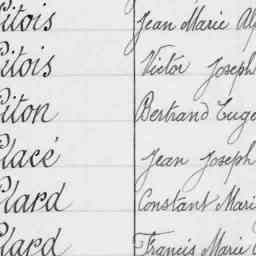 Pitois Jean Marie Al
Pitois Victor Joseph
Piton Bertrand Euge
Placé Jean Joseph
Plard Constant Mari
Plard Francis Marie